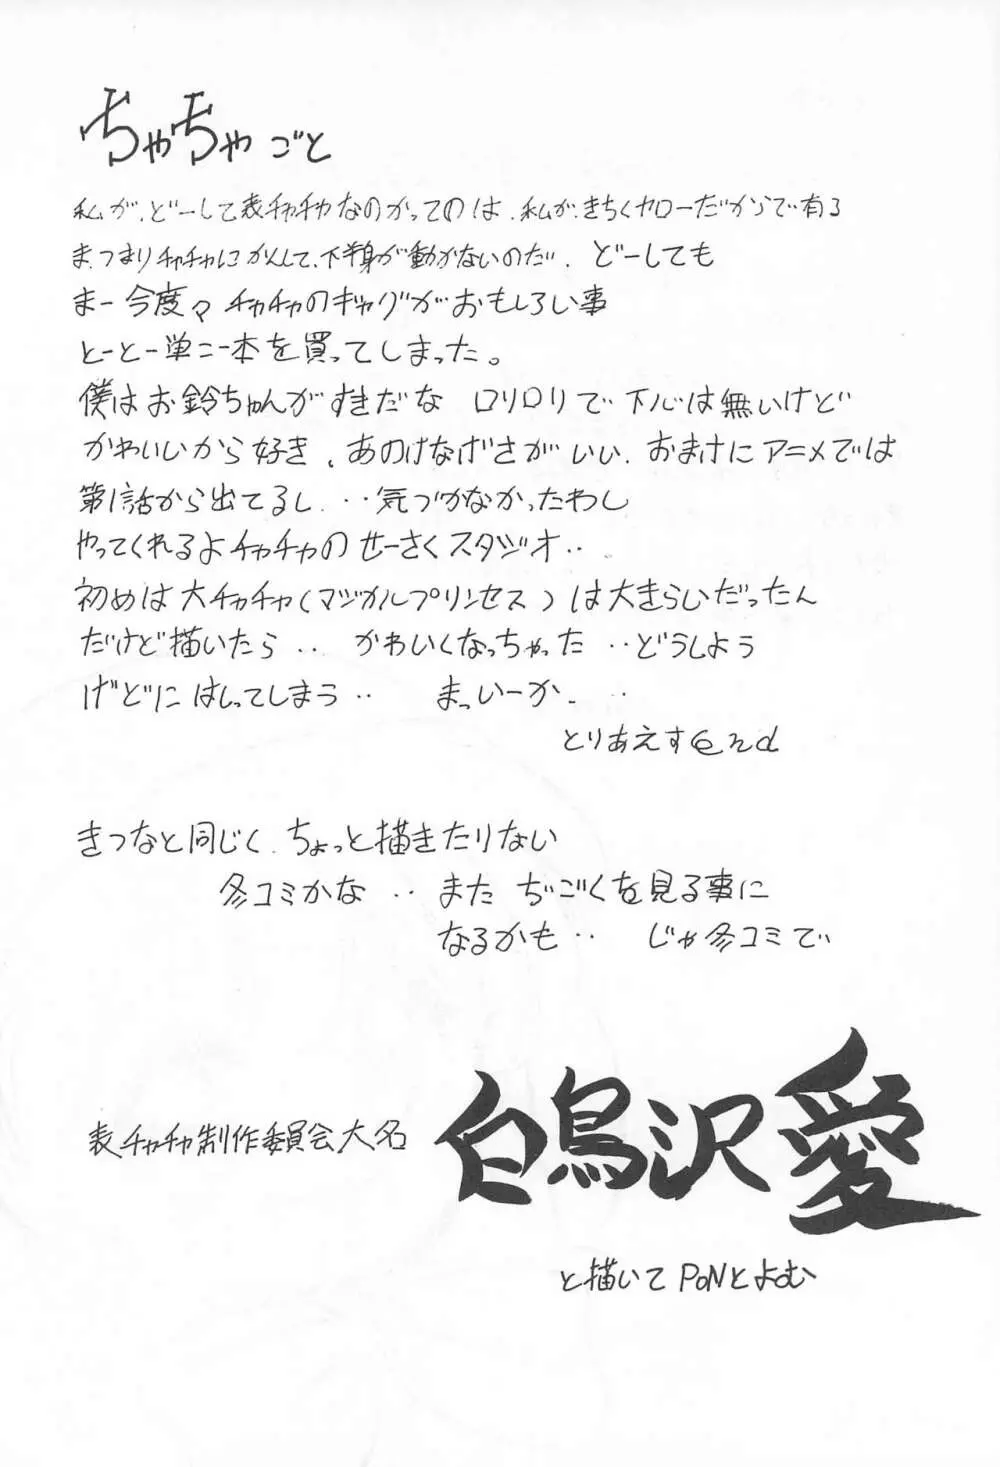 ちゃちゃごと
私が、どーして表チャチャなのかってのは、私が、きちくヤローだからで有る
ま、つまりチャチャにかんして、下半身が動かないのだ、どーしても
まー今度々チャチャのギャグがおもしろい事
とーとー単こー本を買ってしまった。
僕はお鈴ちゃんがすきだな ロリロリで下心は無いけど
かわいいから好き、あのけなげさがいい、おまけにアニメでは
第1話から出てるし‥気づかなかったわし
やってくれるよチャチャのせーさくスタジオ‥
初めは大チャチャ(マジカルプリンセス)は大きらいだったん
だけど描いたら‥ かわいくなっちゃった‥どうしよう
げどにはしってしまう‥ まっいーか‥
とりあえすend
きつなと同じく、ちょっと描きたりない
冬コミかな‥またぢごくを見る事に
なるかも‥ じゃ冬コミで
表チャチャ制作委員会大名
白鳥沢愛
と描いてPoNとよむ